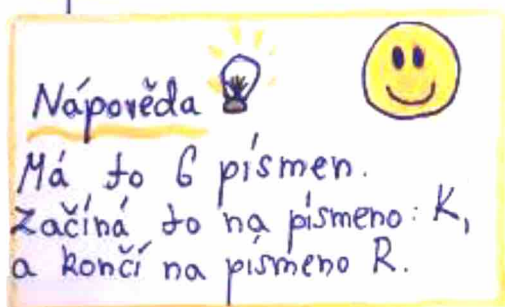 Nápověda
Má to 6 písmen.
Začíná to na písmeno: K,
a končí na písmeno R.